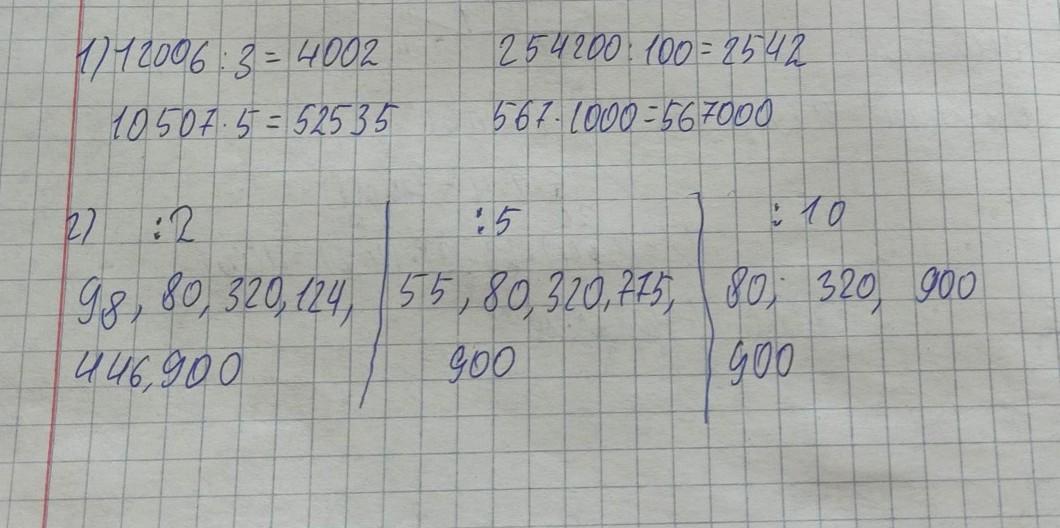 1) 12006 : 3 = 4002 254200 : 100 = 2542
10507 · 5 = 52535 567 · 1000 = 567000
2) : 2 : 5 : 10
98, 80, 320, 124, 55, 80, 320, 775, 80, 320, 900
446, 900 900 900